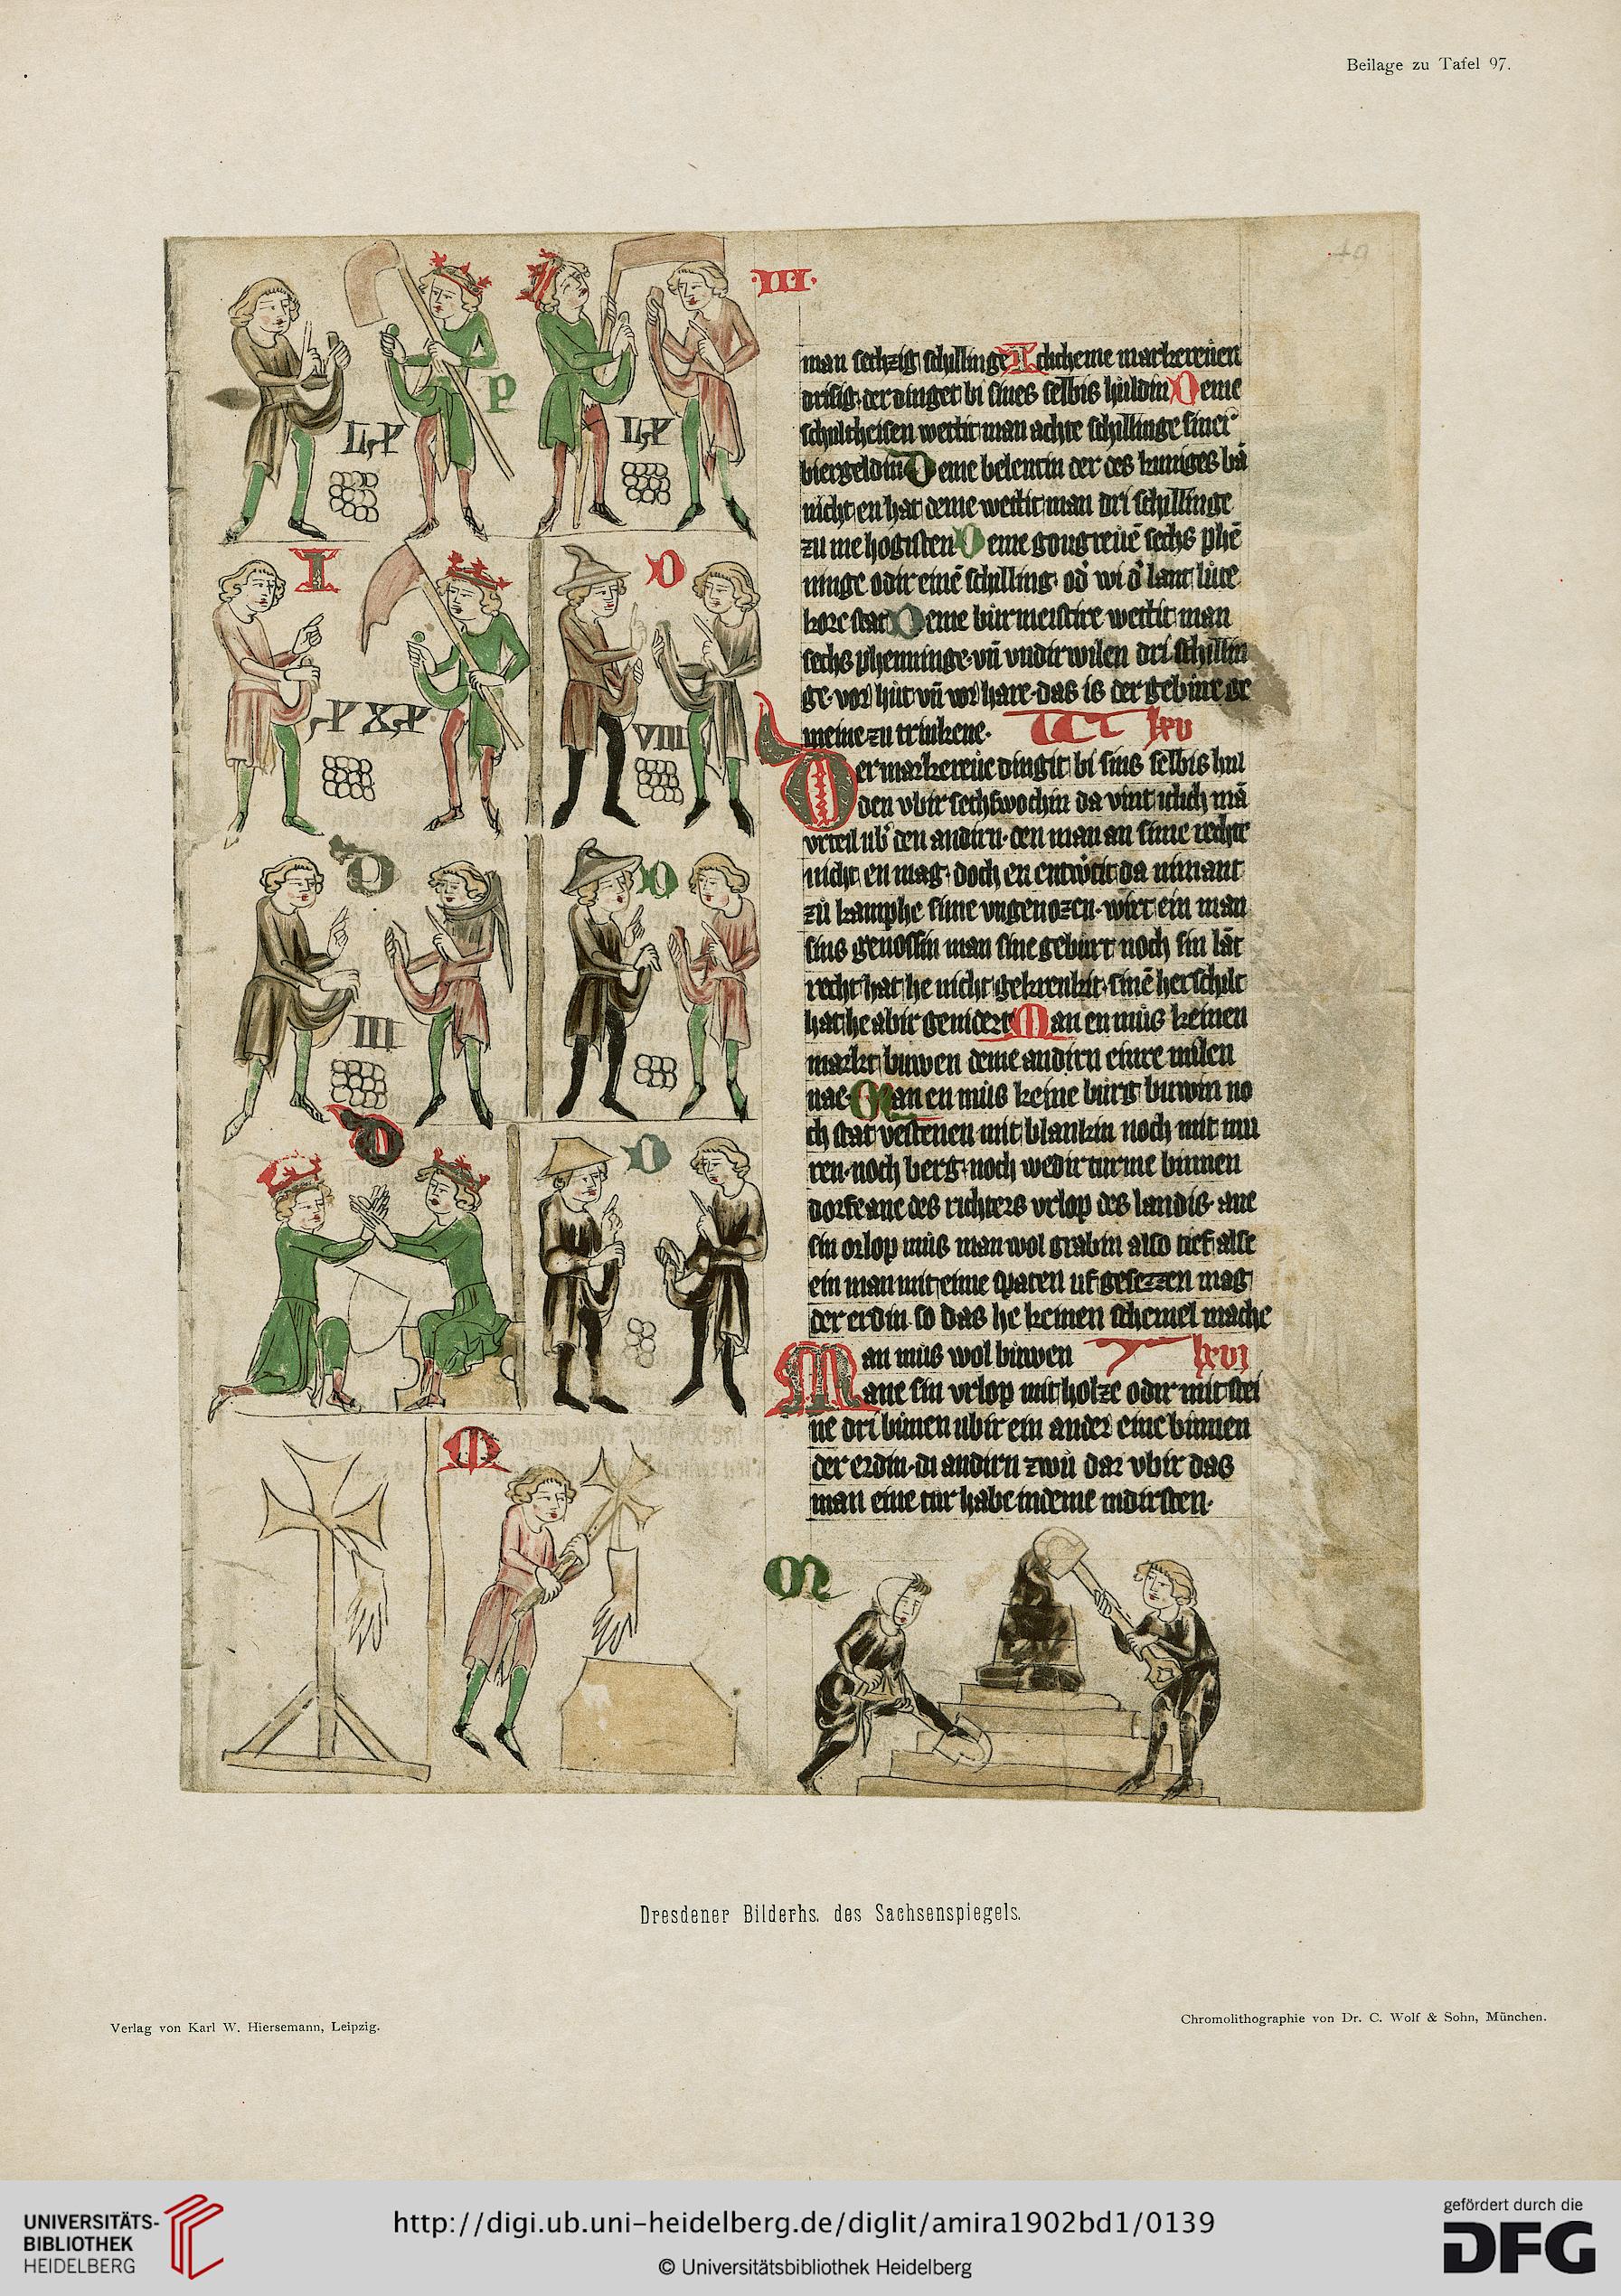 Beilage zu Tafel 97.
·III·
man sechzig schillinge Iclicheme markereuen
drisig, der dinget bi sines selbis huldin Deme
schultheisen wettit man achte schillinge siner
biergeldin Deme belentin der des kuniges bā
nicht en hat deme wettit man dri schillinge
zu me hogisten Deme gougreuē sechs phē
ninge odir einē schilling, od' wi d' lant lute
kore stat Deme burmeistire wettit man
sechs phenninge, vn̄ vndirwilen dri schillin
ge, vor hut vn̄ vor hare, das is der gebure ge
meine zu trinkene. lxv
Der markereue dingit bi sins selbis hul
den vbir sechswochin da vint iclich mā
vrteil ub' den andirn, den man an sime rechte
nicht en mag, doch en entwortit da nimant
zu kamphe sime vngenozen, wirt ein man
sins genossin man sine geburt noch sin lāt
recht hat he nicht gekrenkit, sinē herschilt
hat he abir genidert Man en mus keinen
markt buwen deme andirn einre milen
nae, Man en mus keine burg buwin no
ch stat vestenen mit blankin noch mit mu
ren, noch berg, noch wedir turme binnen
dorfe ane des richters vrlop des landis, ane
sin orlop mus man wol grabin also tief alse
ein man mit eime spaten uf gesezzen mag
der erdin so das he keinen schemel mache
Man mus wol buwen lxvi
ane sin vrlop mit holze odir mit stei
ne dri bunen ubir ein ander eine binnen
der erdin, di andirn zwu dar vbir das
man eine tur habe indeme nidirsten.
P
I
D
VIII
D
D
III
D
D
M
M
Dresdener Bilderhs. des Sachsenspiegels.
Verlag von Karl W. Hiersemann, Leipzig.
Chromolithographie von Dr. C. Wolf & Sohn, München.
UNIVERSITÄTS-
BIBLIOTHEK
HEIDELBERG
http://digi.ub.uni-heidelberg.de/diglit/amira1902bd1/0139
© Universitätsbibliothek Heidelberg
gefördert durch die
DFG